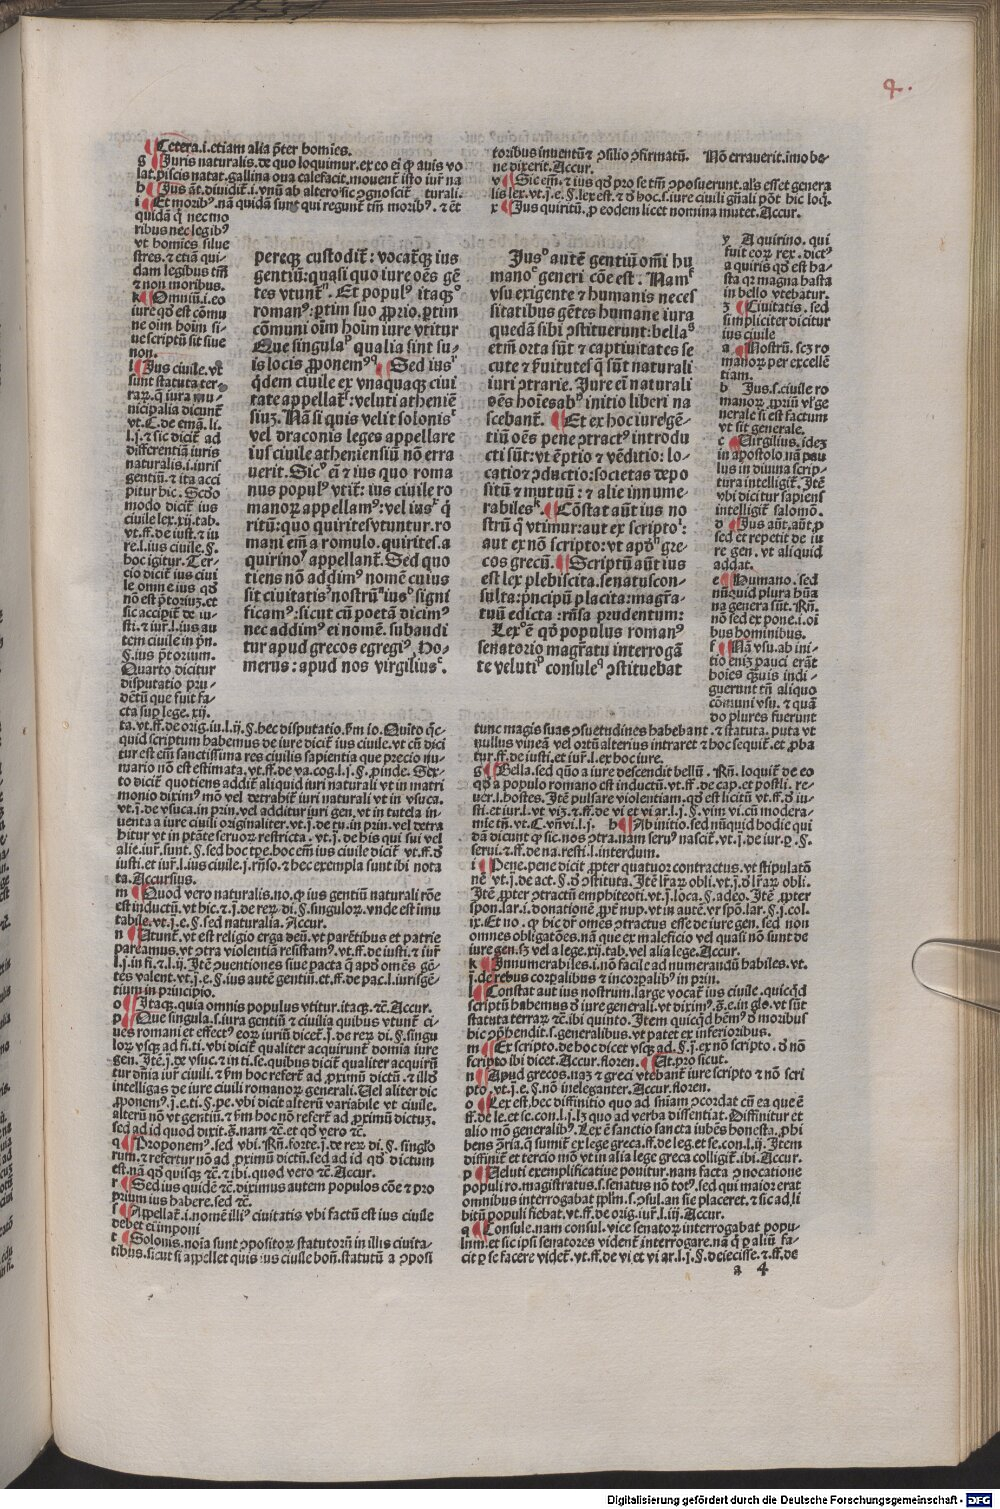 4.
Cetera.i.etiam alia p̄ter homīes.
g Juris naturalis.de quo loquimur.ex eo eī ꝙ auis vo
lat.piscis natat.gallina oua calefacit.mouent̄ isto iur̄ na
h Jus āt.diuidit̄.i.vnū ab altero sic ꝯgnoscit̄ turali.
i Et moribꝰ.nā quidā sunt qui regunt̄ tm̄ moribꝰ.⁊ ēt
quidā q̄ nec mo
ribus nec legibꝰ
vt homīes silue
stres.⁊ etiā qui-
dam legibus tm̄
⁊ non moribus.
k Omniū.i.eo
iure qd̄ est cōmu
ne oim hoim si-
ue scriptū sit siue
non.
l Jus ciuile.vt
sunt statuta ter-
rarꝝ.q̄ iura mu-
nicipalia dicunt̄
vt.C.de emā.li.
l.j.⁊ sic dicit̄ ad
differentiā iuris
naturalis.i.iuris
gentiū.⁊ ita acci
pitur hic. Scd̄o
modo dicit̄ ius
ciuile lex.xij.tab.
vt.ff.de iust.⁊ iu
re.l.ius ciuile.§.
hoc igitur. Ter-
cio dicit̄ ius ciui
le omne ius qd̄
nō est p̄torium.et
sic accipit̄ de iu-
sti.⁊ iur̄.l.ius au
tem ciuile in pn̄.
§.ius p̄torium.
Quarto dicitur
disputatio pru-
dētū que fuit fa-
cta sup lege.xij.
pereqꝫ custodit̄: vocat̄qꝫ ius
gentiū:quasi quo iure oēs gē
tes vtunt̄. Et populꝰ itaqꝫ
romanꝰ:ꝑtim suo ꝓprio.ꝑtim
cōmuni oīm hoim iure vtitur
Que singula qualia sint su-
is locis ꝓponemꝰ. Sed ius
q̄dem ciuile ex vnaquaqꝫ ciui
tate appellat̄:veluti atheniē
siuꝫ. Nā si quis velit solonis
vel draconis leges appellare
ius ciuile atheniensiū nō erra
uerit. Sic eī ⁊ ius quo roma
nus populꝰ vtit̄: ius ciuile ro
manorꝝ appellamꝰ:vel ius q̄
ritiū:quo quirites vtuntur.ro
mani em̄ a romulo.quirites.a
quirino appellant̄. Sed quo
tiens nō addimꝰ nomē cuius
sit ciuitatis nostrū ius signi
ficamꝰ:sicut cū poetā dicimꝰ
nec addimꝰ ei nomē. subaudi
tur apud grecos egregiꝰ. Ho-
merus:apud nos virgilius.
toribus inuentū ⁊ ꝯsilio ꝯfirmatū. Nō errauerit.imo be-
ne dixerit.Accur.
v Sic em̄.⁊ ius qd̄ pro se tm̄ ꝯposuerunt.al's esset genera
lis lex.vt.j.e.§.lex est.⁊ d̄ hoc.s.iure ciuili gn̄ali pōt hic loq̄.
x Jus quiritū.ꝓ eodem licet nomina mutet.Accur.
Jus autē gentiū omī hu
mano generi cōe est. Nam
vsu exigente ⁊ humanis neces
sitatibus gētes humane iura
quedā sibi ꝯstituerunt:bella
etm̄ orta sūt ⁊ captiuitates se
cute ⁊ ẜuitutes q̄ sūt naturali
iuri ꝯtrarie. Jure eī naturali
oēs hoīes ab initio liberi na
scebant̄. Et ex hoc iure gē-
tiū oēs pene ꝯtractꝰ introdu
cti sūt:vt ēptio ⁊ vēditio:lo-
catio ⁊ ꝯductio:societas depo
sitū ⁊ mutuū: ⁊ alie innume-
rabiles. Cōstat aūt ius no
strū q̄ vtimur:aut ex scripto:
aut ex nō scripto:vt apd̄ gre-
cos grecū. Scriptū aūt ius
est lex plebiscita.senatuscon-
sulta:pn̄cipū placita:magr̄a-
tuū edicta :rn̄sa prudentum:
Lex ē qd̄ populus romanꝰ
senatorio magr̄atu interrogā
te veluti consule ꝯstituebat
y A quirino. qui
fuit eorꝝ rex.dictꝰ
a quiris qd̄ est ha-
sta qꝛ magna hasta
in bello vtebatur.
z Ciuitatis. sed
simpliciter dicitur
ius ciuile
a Nostrū.scꝫ ro
manorꝝ per excellē
tiam.
b Jus.s.ciuile ro
manorꝝ ꝓpriū vl' ge
nerale si est factum
vt sit generale.
c Virgilius.ideꝫ
in apostolo.nā pau
lus in diuina scrip-
tura intelligit̄. Itē
vbi dicitur sapiens
intelligit̄ salomō.
d Jus aūt.aūt.ꝓ
sed et repetit de iu
re gen. vt aliquid
addat.
e Humano. sed
nūquid plura hūa
na genera sūt. Rn̄.
nō sed expone.i.oī
bus hominibus.
f Nā vsu.ab ini-
tio eniꝫ pauci erāt
hoīes qꝫuis indi-
guerunt tn̄ aliquo
cōmuni vsu.⁊ quā
do plures fuerunt
ta.vt.ff.de orig.iu.l.ij.§.hec disputatio.ẜm io. Quīto q̄c-
quid scriptum habemus de iure dicit̄ ius ciuile.vt cū dici
tur est em̄ sanctissima res ciuilis sapientia que precio nu-
mario nō est estimata.vt.ff.de va.cog.l.j.§.ꝓinde. Sex-
to dicit̄ quotiens addit̄ aliquid iuri naturali vt in matri
monio diximꝰ mō vel detrahit̄ iuri naturali vt in vsuca.
vt.j.de vsuca.in prin.vel additur iuri gen.vt in tutela in-
uenta a iure ciuili originaliter.vt.j.de tu.in prin.vel detra
hitur vt in ptāte seruorū restricta .vt.j.de his qui sui vel
alie.iur̄.sunt.§.sed hoc tpe.hoc em̄ ius ciuile dicit̄ vt.ff.d̄
iusti.et iur̄.l.ius ciuile.j.rn̄so.⁊ hec exempla sunt ibi nota
ta.Accursius.
m Quod vero naturalis.no.ꝙ ius gentiū naturali rōe
est inductū.vt hic.⁊.j.de rerꝝ di.§.singulorꝝ.vnde est imu
tabile.vt.j.e.§.sed naturalia.Accur.
n Utunt̄.vt est religio erga deū.vt parētibus et patrie
pareamus.vt ꝯtra violentiā resistamꝰ.vt.ff.de iusti.⁊ iur̄
l.j.in fi.⁊ l.ij. Itē ꝯuentiones siue pacta q̄ apd̄ omēs gē-
tes valent.vt.j.e.§.ius autē gentiū.et.ff.de pac.l.iurisgē-
tium in principio.
o Itaqꝫ.quia omnis populus vtitur.itaqꝫ.⁊c̄.Accur.
p Que singula.s.iura gentiū ⁊ ciuilia quibus vtunt̄ ci-
ues romani et effectꝰ eorꝝ iuriū dicet̄.j.de rerꝝ di.§.singu
lorꝝ vsqꝫ ad fi.ti.vbi dicit̄ qualiter acquirunt̄ domīa iure
gen. Itē.j.de vsuc.⁊ in ti.se.quibus dicit̄ qualiter acquirū
tur dn̄ia iur̄ ciuili.⁊ ẜm hoc refert̄ ad ꝓximū dictū.⁊ illd̄
intelligas de iure ciuili romanorꝝ generali. Uel aliter dic
ꝓponemꝰ.j.e.ti.§.pe.vbi dicit alterū variabile vt ciuile.
alterū nō vt gentiū.⁊ ẜm hoc nō refert̄ ad ꝓximū dictuꝫ.
sed ad id quod dixit.§.nam ⁊c̄.et qd̄ vero ⁊c̄.
q Proponemꝰ.sed vbi. Rn̄.forte.j.de rerꝝ di.§.singl'o
rum.⁊ refertur nō ad ꝓximū dictū.sed ad id qd̄ dictum
est.nā qd̄ quisqꝫ ⁊c̄.⁊ ibi.quod vero ⁊c̄.Accur.
r Sed ius quidē ⁊c̄.diximus autem populos cōe ⁊ pro
prium ius habere.sed ⁊c̄.
s Appellat̄.i.nomē illiꝰ ciuitatis vbi factū est ius ciuile
debet ei imponi
t Solonis.noīa sunt ꝯpositorꝝ statutorū in illis ciuita-
tibus.sicut si appellet quis ius ciuile bon̄.statutū a ꝯposi
tunc magis suas ꝯsuetudines habebant .⁊ statuta. puta vt
nullus vineā vel ortū alterius intraret ⁊ hoc sequit̄.et ꝓba
tur.ff.de iusti.et iur̄.l.ex hoc iure.
g Bella.sed qūo a iure descendit bellū. Rn̄. loquit̄ de eo
qd̄ a populo romano est inductū.vt.ff.de cap.et postli. re-
uer.l.hostes. Itē pulsare violentiam.qd̄ est licitū vt.ff.d̄ iu-
sti.et iur.l.vt viꝫ.⁊ ff.de vi et vi ar.l.j.§.vim vi.cū modera-
mīe tn̄.vt.C.vn̄ vi.l.j. h Ab initio.sed nunquid hodie qui
dā dicunt ꝙ sic.nos ꝯtra.nam seruꝰ nascit̄.vt.j.de iur.ꝑ.§.
serui.⁊ ff.de na.resti.l.interdum.
i Pene.pene dicit ꝓpter quatuor contractus.vt stipulatō
nē vt.j.de act.§.d̄ ꝯstituta. Itē lr̄arꝝ obli.vt.j.d̄ lr̄arꝝ obli.
Itē ꝓpter ꝯtractū emphiteoti.vt.j.loca.§.adeo. Itē ꝓpter
spon.lar.i.donationē ꝓpt̄ nup.vt in autē.vt spō.lar.§.j.col.
ix.Et no.ꝙ hic dr̄ omēs ꝯtractus esse de iure gen. sed non
omnes obligatōes.nā que ex maleficio vel quasi nō sunt de
iure gen.sꝫ vel a lege.xij.tab.vel alia lege.Accur.
k Innumerabiles.i.nō facile ad numerandū habiles.vt.
j.de rebus corꝑalibus ⁊ incorꝑalibꝰ in prin.
l Constat aut ius nostrum.large vocat̄ ius ciuile.quicqd̄
scriptū habemus d̄ iure generali.vt diximꝰ.§.e.in glo.vt sūt
statuta terrarꝝ ⁊c̄.ibi quinto. Item quicqd̄ hēmꝰ d̄ moribus
hic ꝯp̄hendit̄.s.generalibus.vt patet ex inferioribus.
m Ex scripto.de hoc dicet vsqꝫ ad.§.j.ex nō scripto. d̄ nō
scripto ibi dicet.Accur.floren. Ut pro sicut.
n Apud grecos.naꝫ ⁊ greci vtebant̄ iure scripto ⁊ nō scri
pto.vt.j.e.§.nō ineleganter.Accur.floren.
o Lex est.hec diffinitio quo ad sniam ꝯcordat cū ea que ē
ff.de le.et se.con.l.j.lꝫ quo ad verba dissentiat. Diffinitur et
alio mō generalibꝰ. Lex ē sanctio sancta iubēs honesta.ꝓhi
bens ꝯ̄ria.q̄ sumit̄ ex lege greca.ff.de leg.et se.con.l.ij. Item
diffinit̄ et tercio mō vt in alia lege greca colligit̄.ibi. Accur.
p Ueluti exemplificatiue ponitur.nam facta ꝯuocatione
populi ro.magistratus.s.senatus nō totꝰ.sed qui maior erat
omnibus interrogabat ꝓlm̄.s.ꝯsul.an sic placeret.⁊ sic ad li
bitū populi fiebat.vt.ff.de orig.iur̄.l.iij.Accur.
q Consule.nam consul.vice senatorꝝ interrogabat popu-
lum.et sic ipsi senatores vident̄ interrogare.nā q̄ ꝑ aliū fa-
cit ꝑ se facere videt̄.vt.ff.de vi et vi ar.l.j.§.deiecisse.⁊.ff.de
a 4
Digitalisierung gefördert durch die Deutsche Forschungsgemeinschaft - DFG